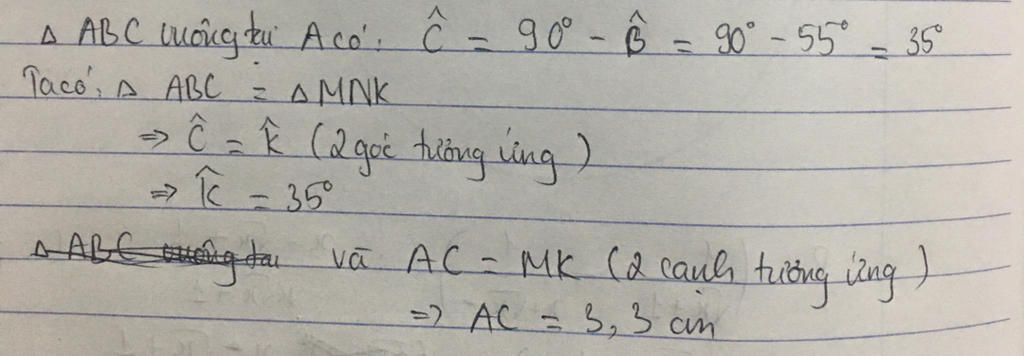 Δ ABC vuông tại A có: Ĉ = 90° - B̂ = 90° - 55° = 35°
Ta có: Δ ABC = Δ MNK
=> Ĉ = K̂ (2 góc tương ứng)
=> K̂ = 35°
Δ ABC vuông tại và AC = MK (2 cạnh tương ứng)
=> AC = 3,3 cm